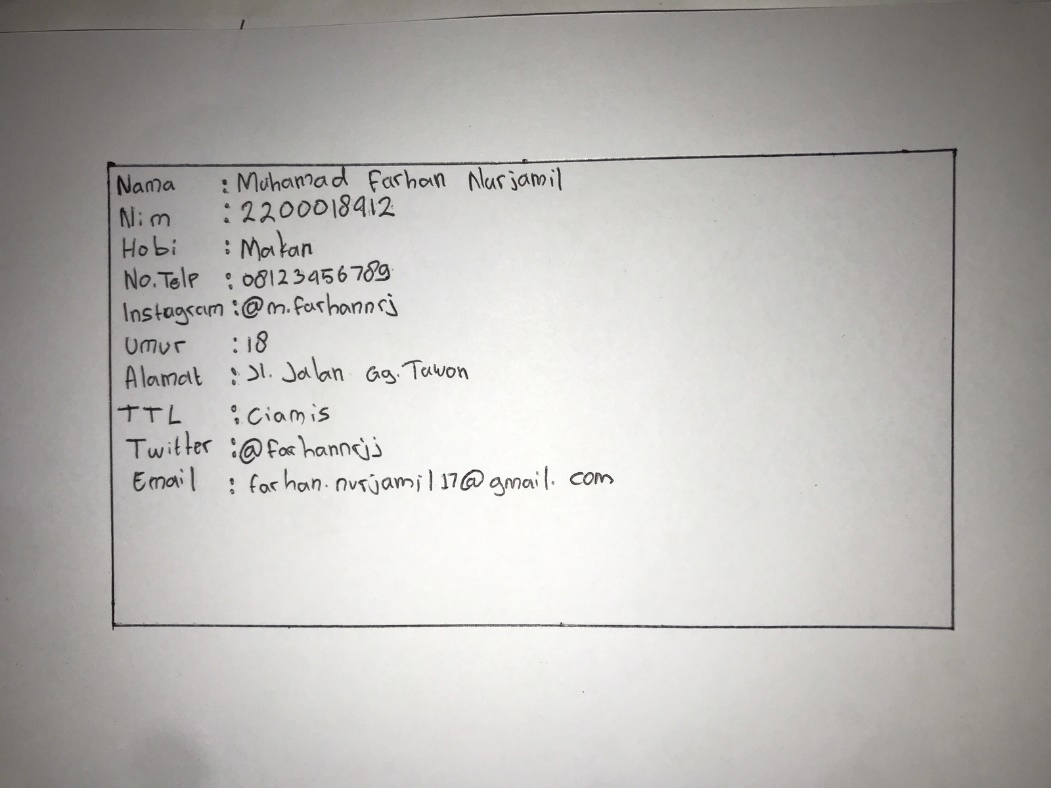 Nama : Muhamad Farhan Nurjamil
Nim : 2200018412
Hobi : Makan
No.Telp : 08123456789
Instagram : @m.farhannrj
Umur : 18
Alamat : Jl. Jalan Gg. Tawon
TTL : Ciamis
Twitter : @farhannrjj
Email : farhan.nurjamil17@gmail.com